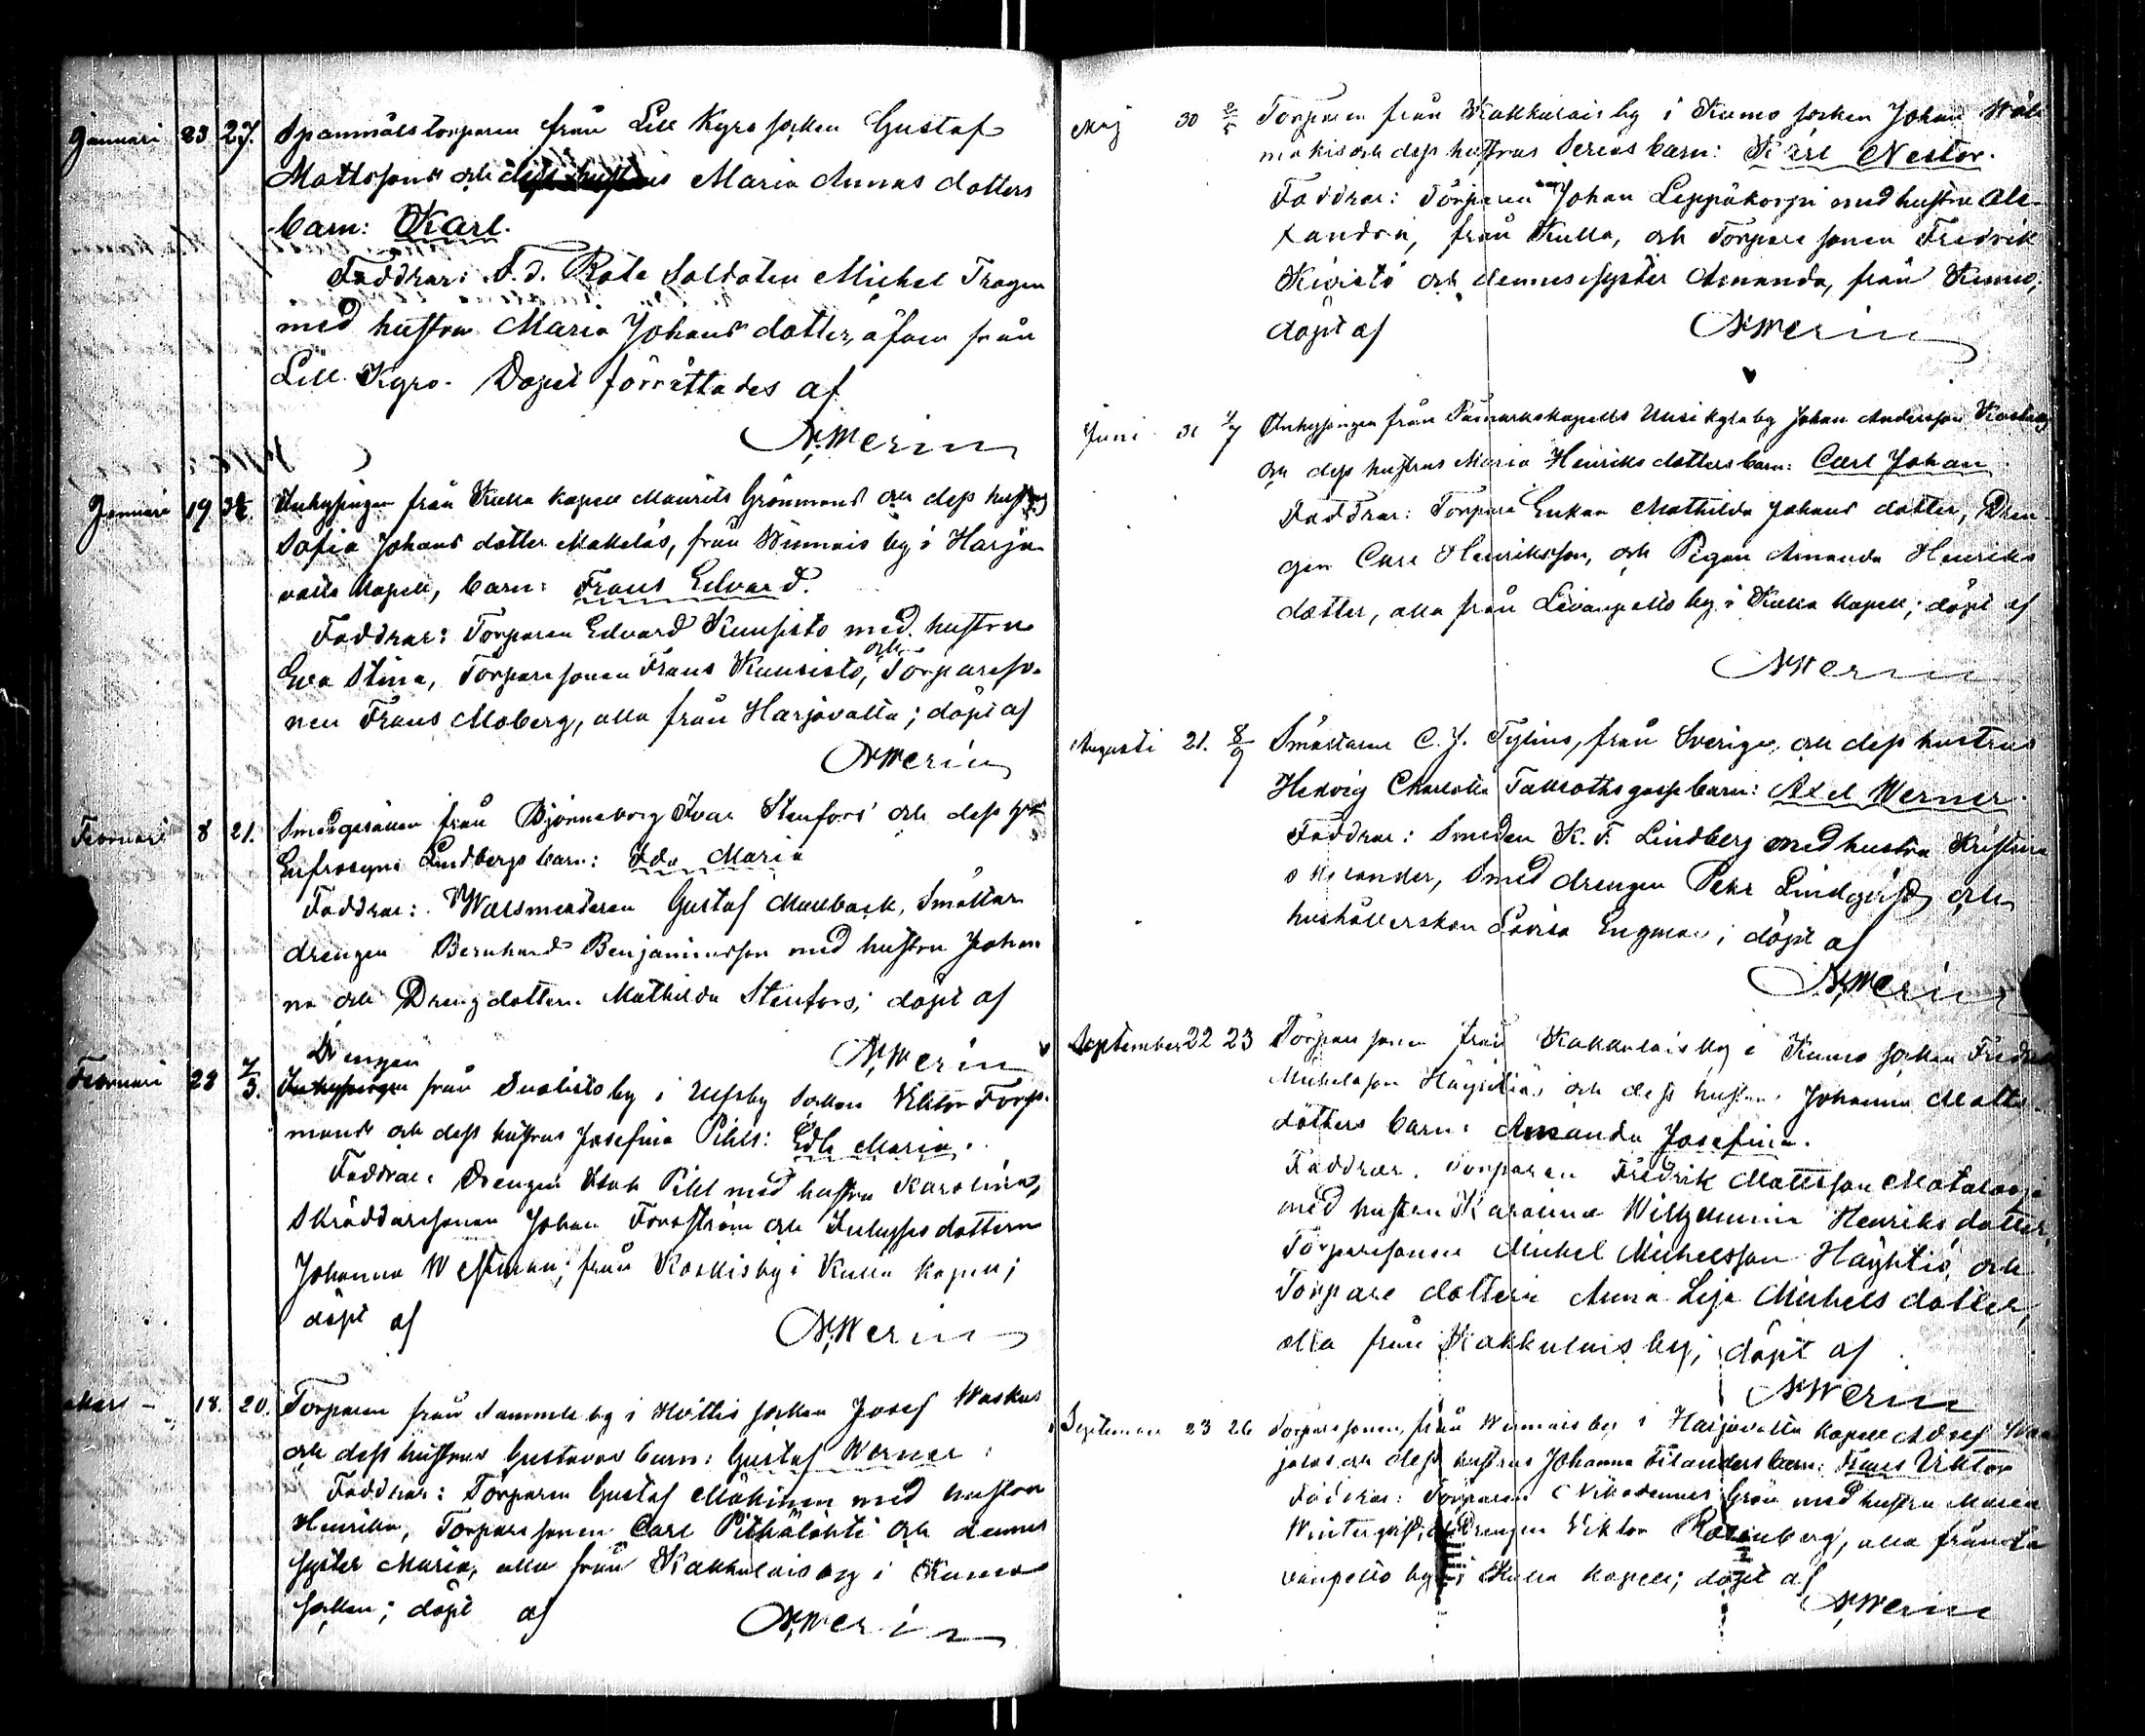 Januari 23 27. Spanmålstorparen från Lill Kyro socken Gustaf
Mattssons och Maria Annas dotters
barn: Karl.
Faddrar: F.d. Rote Soldaten Michel Tragen
med hustru Maria Johans dotter, äfven från
Lill Kyro. Dopet förrättades af
N. Merin
Januari 19 Inhysingen från Kulla kapell Maurits Grönmans och dess hustrus
Sofia Johans dotter Makelás, från Winnais by i Harja-
valla kapell, barn: Frans Edvard.
Faddrar: Torparen Edvard Kuusisto med hustru
Eva Stina, Torparesonen Frans Kuusisto, och Torpareso-
nen Frans Moberg, alla från Harjavalla; döpt af
N. Merin
Februari 8 21. Smedgesällen från Björneborg Ivar Stenfors' och dess
Eufrosyne Lindbergs barn: Ida Maria
Faddrar: Walsmästaren Gustaf Mallback, Smältar
drengen Bernhard Benjaminsson med hustru Johan
na och Drengdottern Mathilda Stenfors; döpt af
N. Merin
Drengen
Februari 28 Inhysingen från Suolisto by i Ulfsby socken Viktor Fors-
mans och dess hustrus Josefina Pihls: Edla Maria.
Faddrar: Drengen Isak Pihl med hustru Karolina,
Skräddarsonen Johan Forsström och Inhysesdottern
Johanna Westman, från Koskisby i Kulla kapell;
döpt af N. Merin
Mars 18. 20. Torparen från Sammule by i Hvittis socken Josef Waskus
och dess hustrus Gustavas barn: Gustaf Werner.
Faddrar: Torparen Gustaf Mäkinen med hustru
Henrika, Torparesonen Carl Pitkälahti och dennes
syster Maria, alla från Kakkulais by i Kumo
socken; döpt af N. Merin
Maj 30 2/5 Torparen från Kakkulais by i Kumo socken Johan Wäli
mäkis och dess hustrus Serias barn: Karl Nestor.
Faddrar: Torparen Johan Leppäkorpi med hustru Ale-
xandra, från Kulla, och Torparesonen Fredrik
Kivistö och dennes syster Amanda, från Kumo,
döpt af N. Merin
Juni Inhysingen från kapells Uusikylä by Johan Andersson
och dess hustrus Maria Henriksdotters barn: Carl Johan.
Faddrar: Torpare Enkan Mathilda Johans dotter, Dren-
gen Carl Henriksson, och Pigan Amanda Henriks
dotter, alla från Levanpelto by i Kulla kapell; döpt af
N. Merin
Augusti 21. 8/9 Smältaren C. J. Tylins, från Sverige, och dess hustrus
Hedvig Charlotta barn: Axel Werner.
Faddrar: Smeden K. F. Lindberg med hustru Kristina
Smeddrengen Pehr Lindqvist och
hushållerskan Lovisa Engman; döpt af
N. Merin
September 22 23 Torparesonen från Kakkulais by i Kumo socken Fredrik
Michelsson Häyhtiös och dess hustrus Johanna Matts-
dotters barn: Amanda Josefina.
Faddrar. Torparen Fredrik Mattsson
med hustru Karolina Wilhelmina Henriks dotter,
Torparesonen Michel Michelsson Häyhtiö, och
Torpare dottern Anna Lisa Michels dotter,
alla från Kakkulais by; döpt af
N. Merin
September 23 26 Torparesonen från Winnais by i Harjavalla kapell Adolf
och dess hustrus Johanna Filanders barn: Frans Viktor
Faddrar: Torparen Nikodemus Grön med hustru Maria
Winterqvist, och Drengen Viktor Rosenberg, alla från Le
vanpelto by i Kulla kapell; döpt af
N. Merin